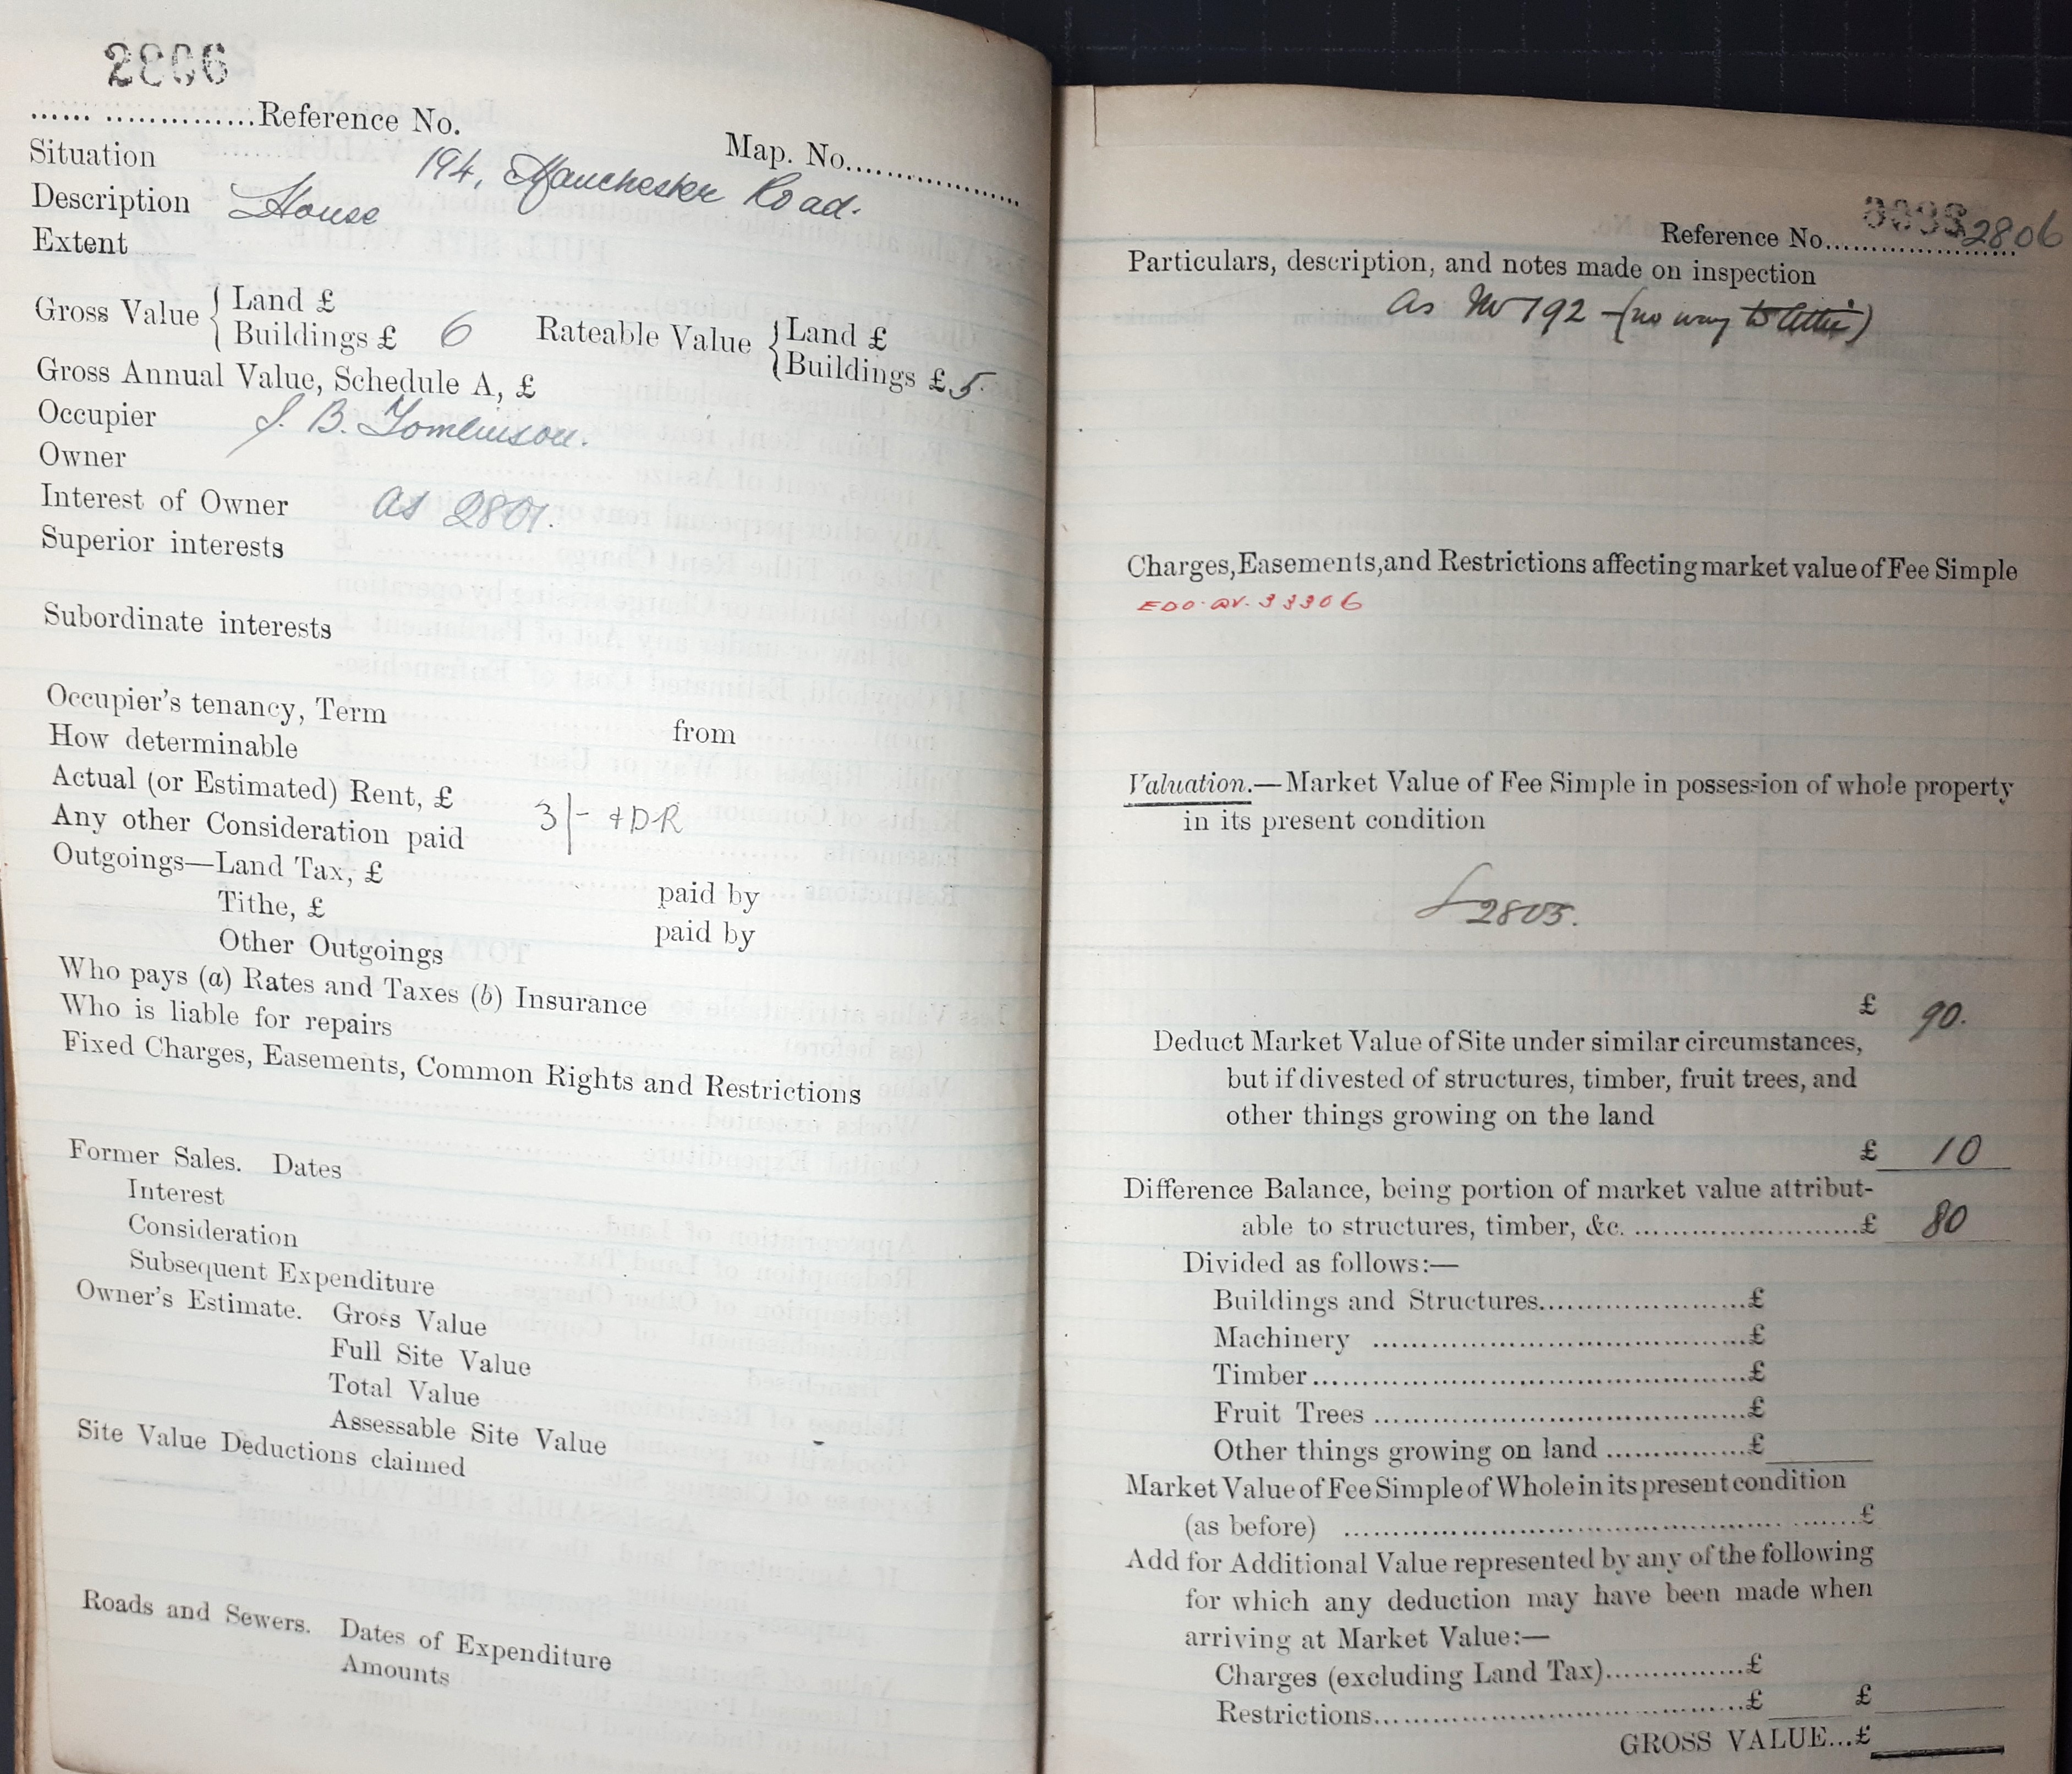 2806
...... ..............Reference No.
Map. No..................
Situation 194, Manchester Road.
Description House
Extent
Gross Value { Land £
Buildings £ 6
Rateable Value { Land £
Buildings £ 5.
Gross Annual Value, Schedule A, £
Occupier J. B. Tomlinson.
Owner
Interest of Owner as 2801.
Superior interests
Subordinate interests
Occupier's tenancy, Term from
How determinable
Actual (or Estimated) Rent, £ 3/- + DR
Any other Consideration paid
Outgoings—Land Tax, £ paid by
Tithe, £ paid by
Other Outgoings
Who pays (a) Rates and Taxes (b) Insurance
Who is liable for repairs
Fixed Charges, Easements, Common Rights and Restrictions
Former Sales. Dates
Interest
Consideration
Subsequent Expenditure
Owner's Estimate. Gross Value
Full Site Value
Total Value
Assessable Site Value
Site Value Deductions claimed
Roads and Sewers. Dates of Expenditure
Amounts
Reference No. 2806
Particulars, description, and notes made on inspection
as No 192 - (no way to attic)
Charges, Easements, and Restrictions affecting market value of Fee Simple
EDO. 33306
Valuation.—Market Value of Fee Simple in possession of whole property
in its present condition
2805.
£ 90.
Deduct Market Value of Site under similar circumstances,
but if divested of structures, timber, fruit trees, and
other things growing on the land
£ 10
Difference Balance, being portion of market value attribut-
able to structures, timber, &c. ..........................£ 80
Divided as follows:—
Buildings and Structures.......................£
Machinery ..........................................£
Timber.................................................£
Fruit Trees ..........................................£
Other things growing on land ................£
Market Value of Fee Simple of Whole in its present condition
(as before) ..........................................................£
Add for Additional Value represented by any of the following
for which any deduction may have been made when
arriving at Market Value:—
Charges (excluding Land Tax)................£
Restrictions..........................................£ £
GROSS VALUE...£